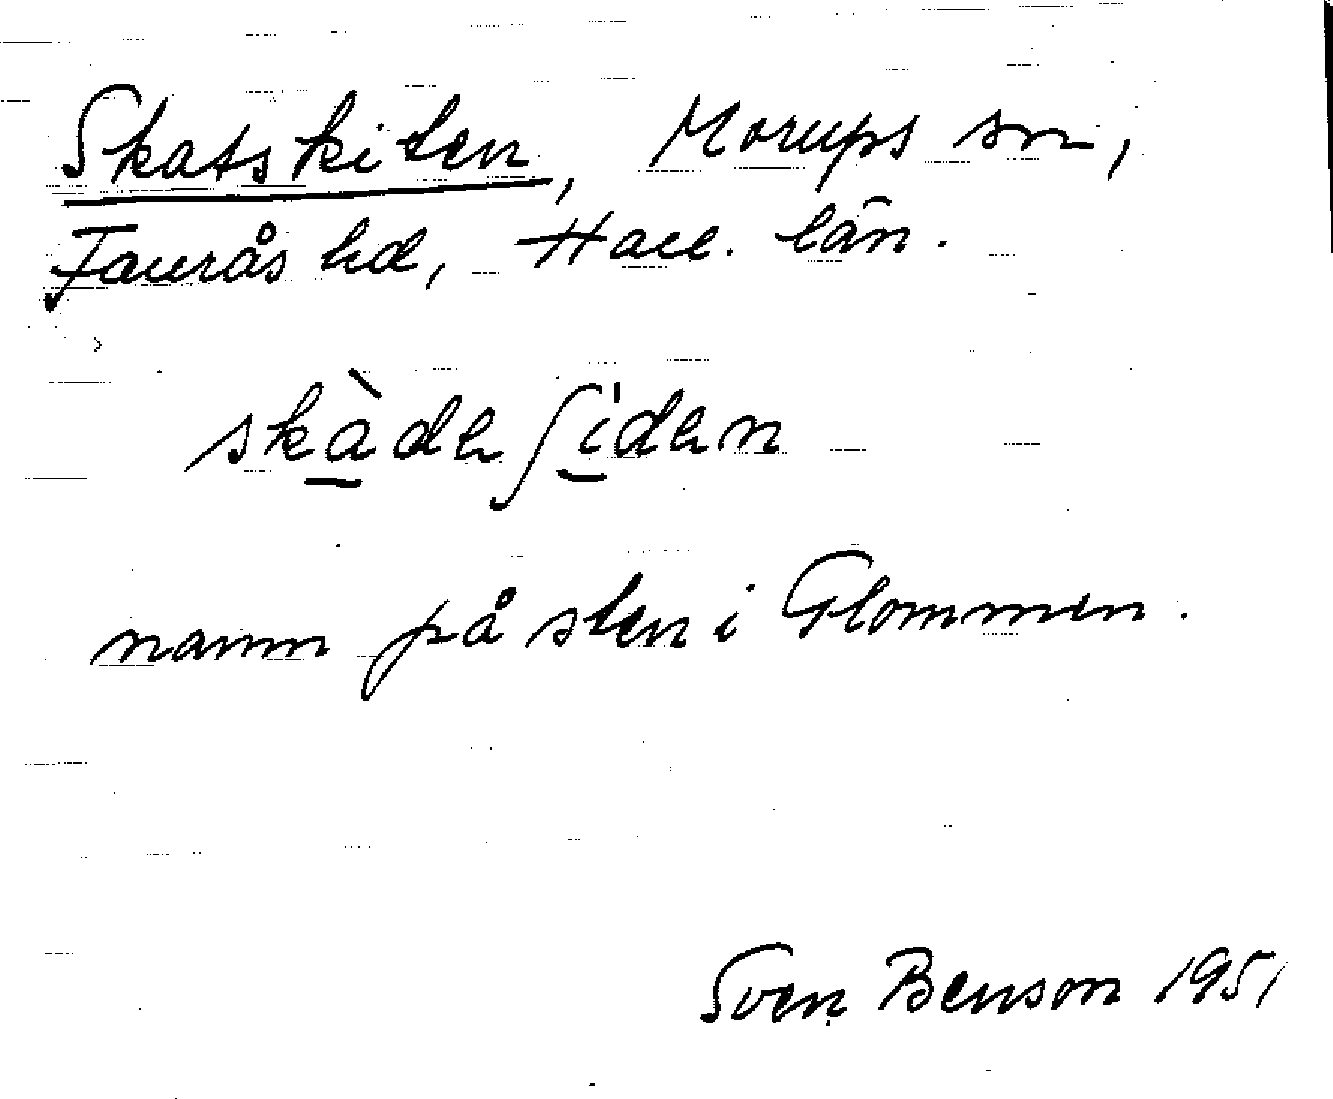 Skatskiten, Morups sn,
Faurås hd, Hall. län.
skàdeʃiden
namn på sten i Glommen.
Sven Benson 1951